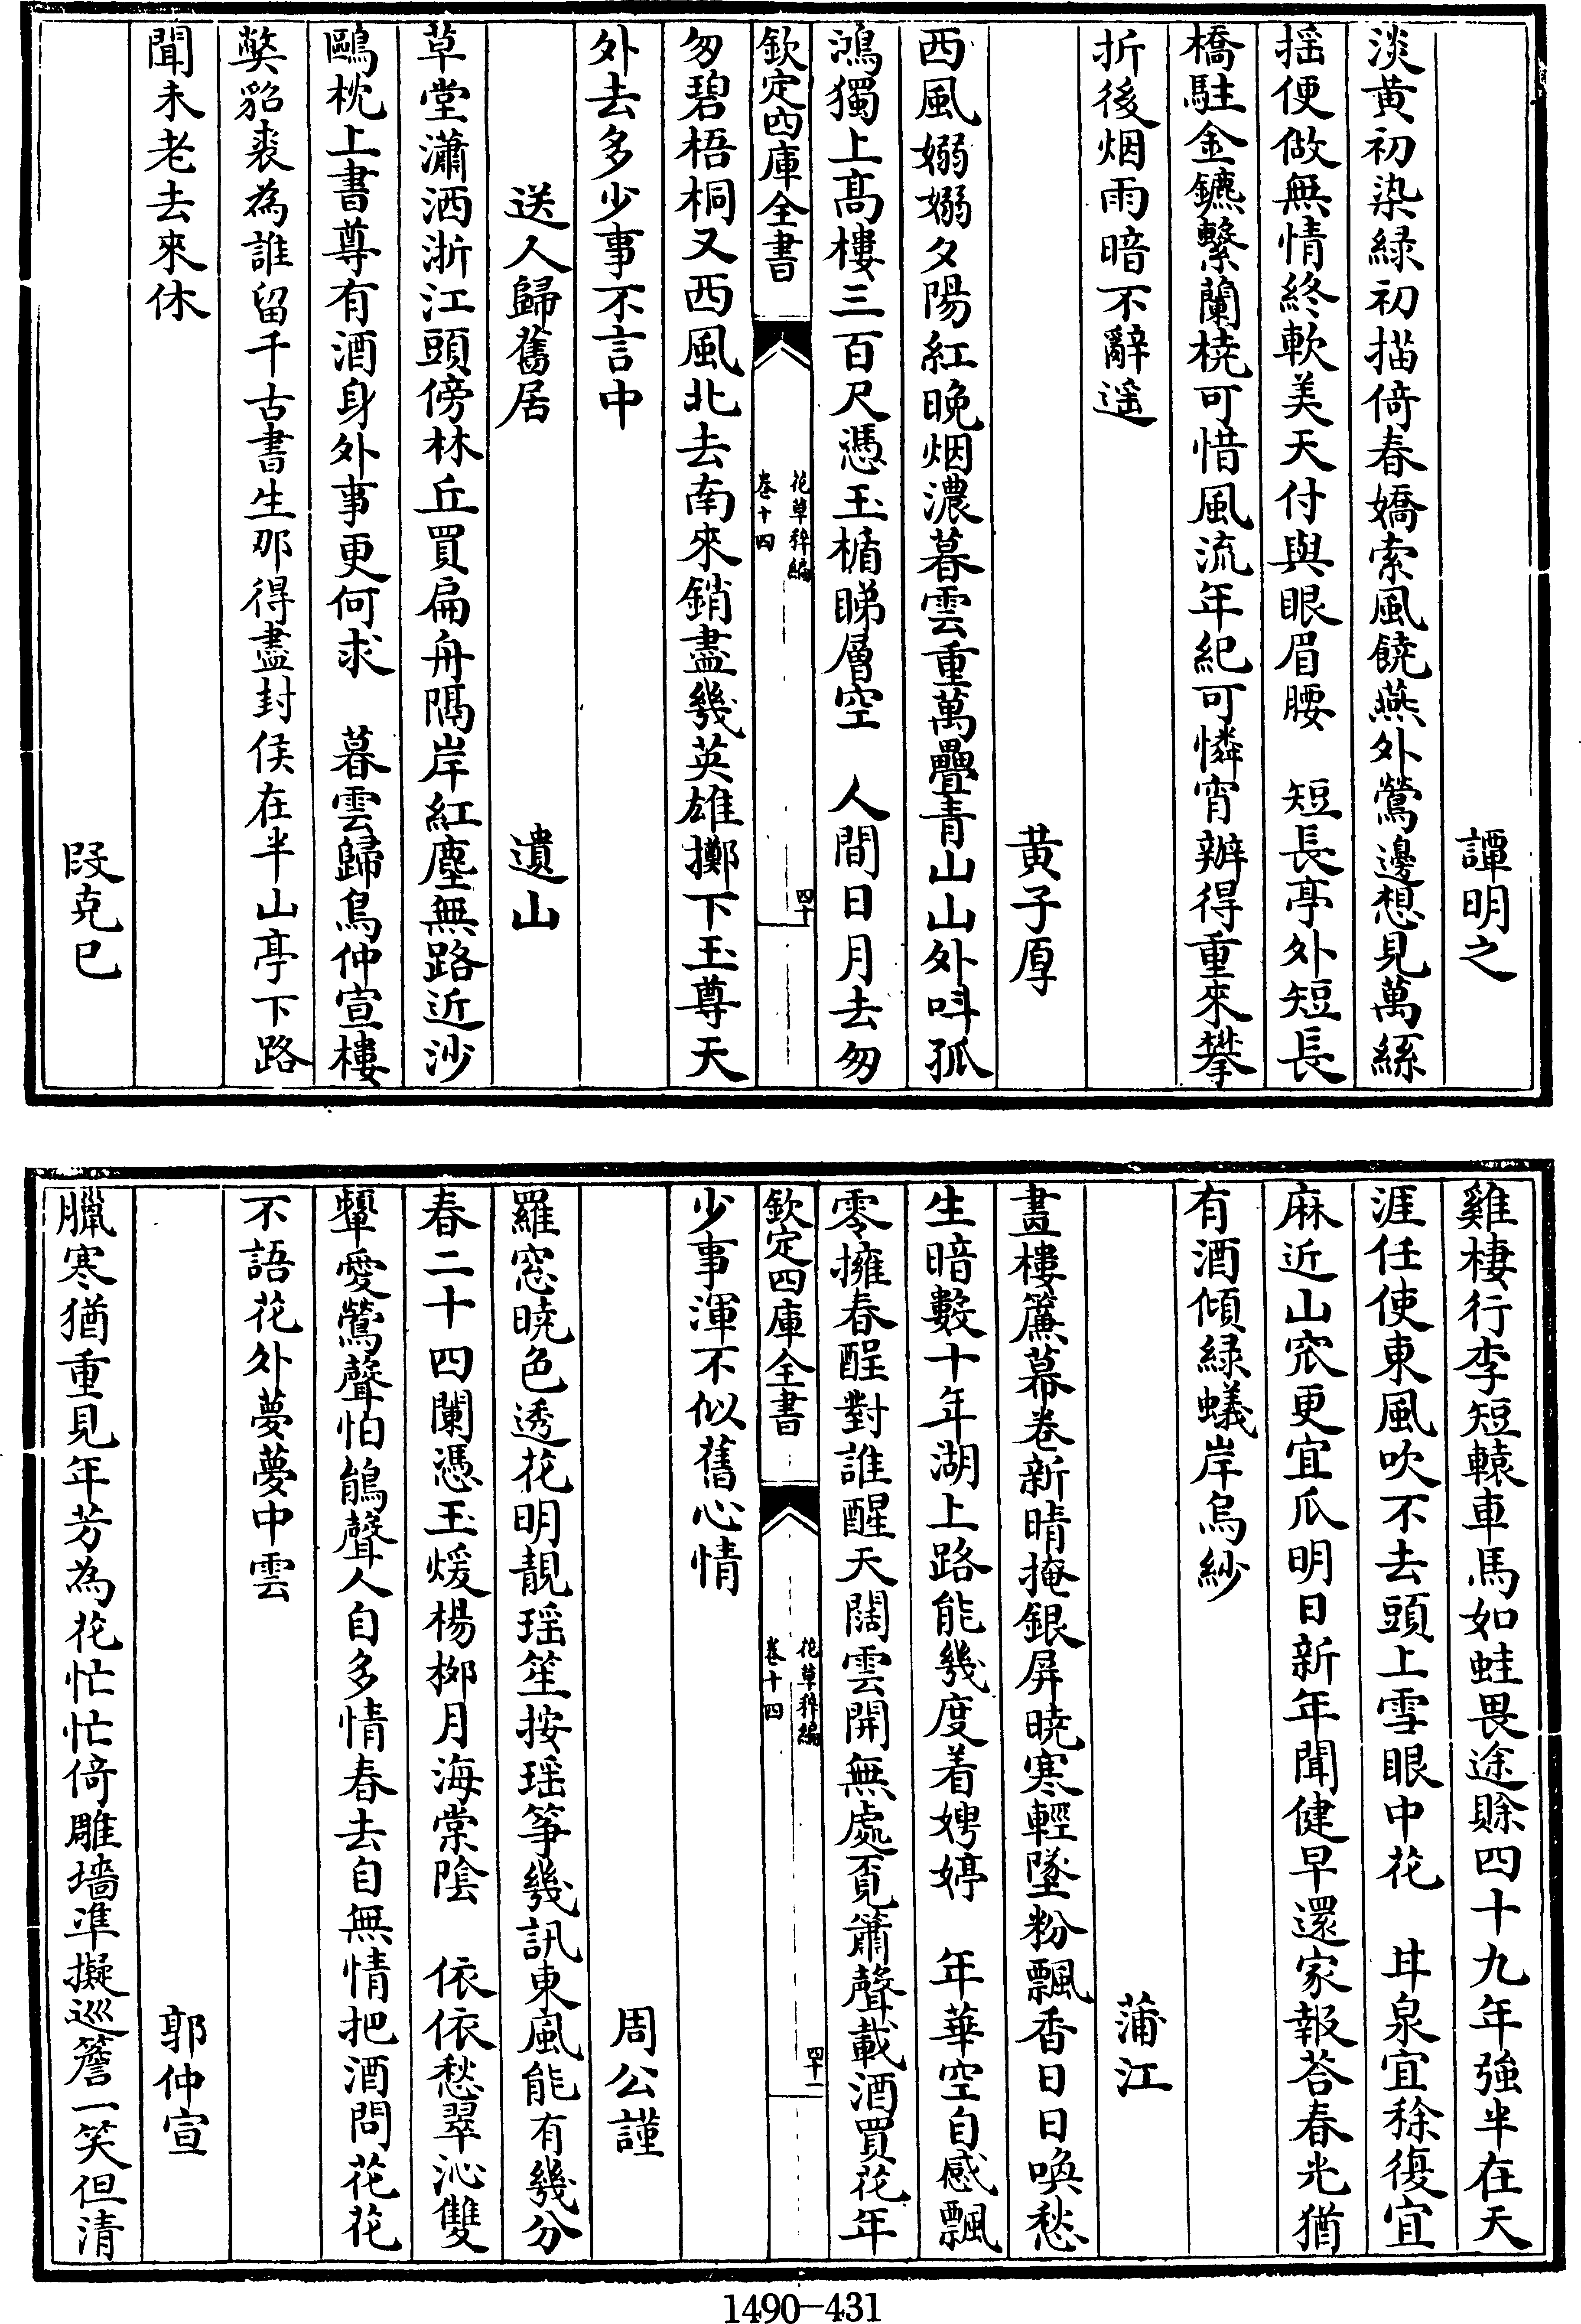 譚明之
淡黄初染緑初描倚春嬌索風饒燕外鶯邊想見萬絲
揺便做無情終軟美天付與眼眉腰　短長亭外短長
橋駐金鑣繫蘭橈可惜風流年紀可憐宵辦得重來攀
折後烟雨暗不辭遥
黄子厚
西風嫋嫋夕陽紅晚烟濃暮雲重萬疊青山山外呌孤
鴻獨上高樓三百尺憑玉楯睇層空　人間日月去匆
欽定四庫全書
花草稡編
卷十四
四十
匆碧梧桐又西風北去南來銷盡幾英雄擲下玉尊天
外去多少事不言中
送人歸舊居　遺山
草堂瀟洒浙江頭傍林丘買扁舟隔岸紅塵無路近沙
鷗枕上書尊有酒身外事更何求　暮雲歸鳥仲宣樓
弊貂裘為誰留千古書生那得盡封侯在半山亭下路
聞未老去來休
段克已
雞棲行李短轅車馬如蛙畏途賖四十九年強半在天
涯任使東風吹不去頭上雪眼中花　甘泉宜稌復宜
麻近山窊更宜瓜明日新年聞健早還家報荅春光猶
有酒傾緑蟻岸烏紗
蒲江
畫樓簾幕巻新晴掩銀屏曉寒輕墜粉飄香日日喚愁
生暗數十年湖上路能幾度着娉婷　年華空自感飄
零擁春酲對誰醒天闊雲開無處覓簫聲載酒買花年
欽定四庫全書
花草稡編
卷十四
四十一
少事渾不似舊心情
周公謹
羅窓曉色透花明靚瑶笙按瑶筝幾訊東風能有幾分
春二十四闌憑玉煖楊桞月海棠陰　依依愁翠沁雙
顰愛鶯聲怕鵑聲人自多情春去自無情把酒問花花
不語花外夢夢中雲
郭仲宣
臘寒猶重見年芳為花忙忙倚雕墻凖擬巡簷一笑但清
1490—431